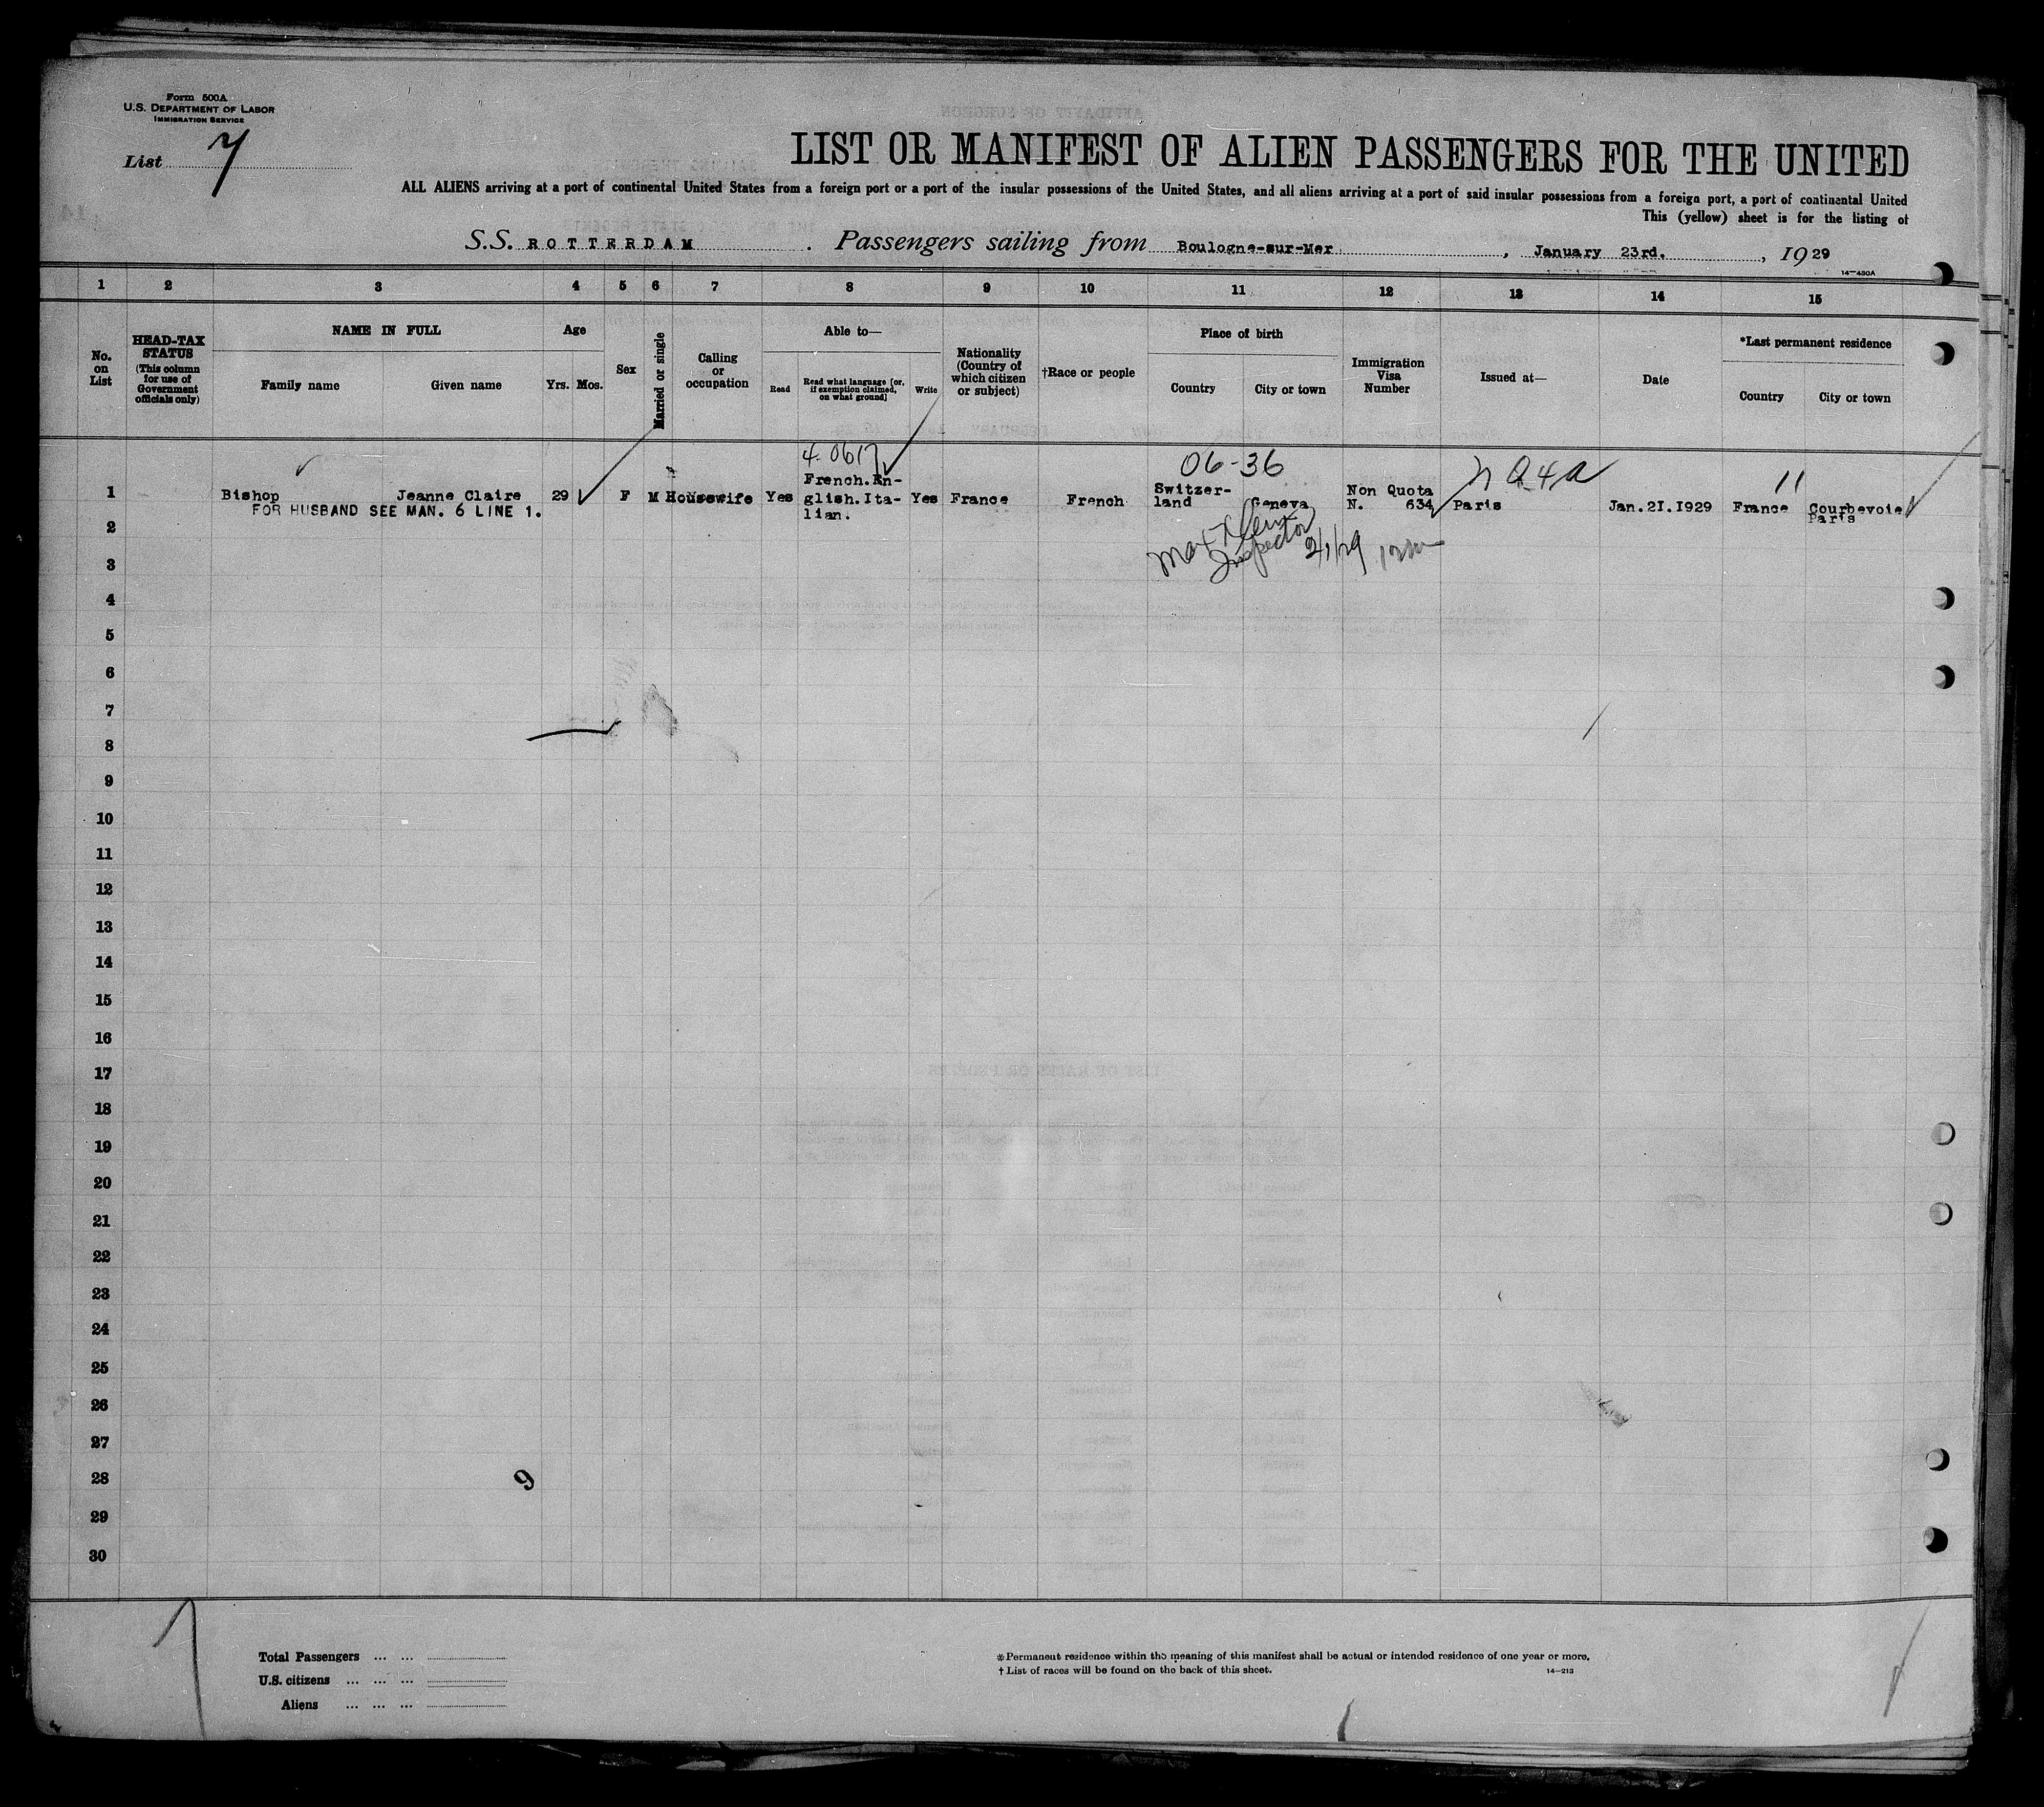 Form 500A
U.S. DEPARTMENT OF LABOR
IMMIGRATION SERVICE
List 7
LIST OR MANIFEST OF ALIEN PASSENGERS FOR THE UNITED
ALL ALIENS arriving at a port of continental United States from a foreign port or a port of the insular possessions of the United States, and all aliens arriving at a port of said insular possessions from a foreign port, a port of continental United
This (yellow) sheet is for the listing of
S.S. ROTTERDAM. Passengers sailing from Boulogne-sur-Mer, January 23rd., 1929
14-430A
1 2 3 4 5 6 7 8 9 10 11 12 13 14 15
No. on List
HEAD-TAX STATUS (This column for use of Government officials only)
NAME IN FULL
Family name Given name
Age
Yrs. Mos.
Sex
Married or single
Calling or occupation
Able to—
Read Read what language [or, if exemption claimed, on what ground] Write
Nationality (Country of which citizen or subject)
†Race or people
Place of birth
Country City or town
Immigration Visa Number
Issued at—
Date
*Last permanent residence
Country City or town
4-0617 06-36 11
1 Bishop Jeanne Claire 29 F M Housewife Yes French.En-glish.Ita-lian. Yes France French Switzer-land Geneva Non Quota N. 634 Paris Jan.2I.I929 France Courbevoie Paris
FOR HUSBAND SEE MAN. 6 LINE 1.
Inspector 2/1/29
2
3
4
5
6
7
8
9
10
11
12
13
14
15
16
17
18
19
20
21
22
23
24
25
26
27
28
29
30
9
Total Passengers ... ...
U.S. citizens ... ... ...
Aliens ... ... ...
*Permanent residence within the meaning of this manifest shall be actual or intended residence of one year or more.
†List of races will be found on the back of this sheet.
14-213